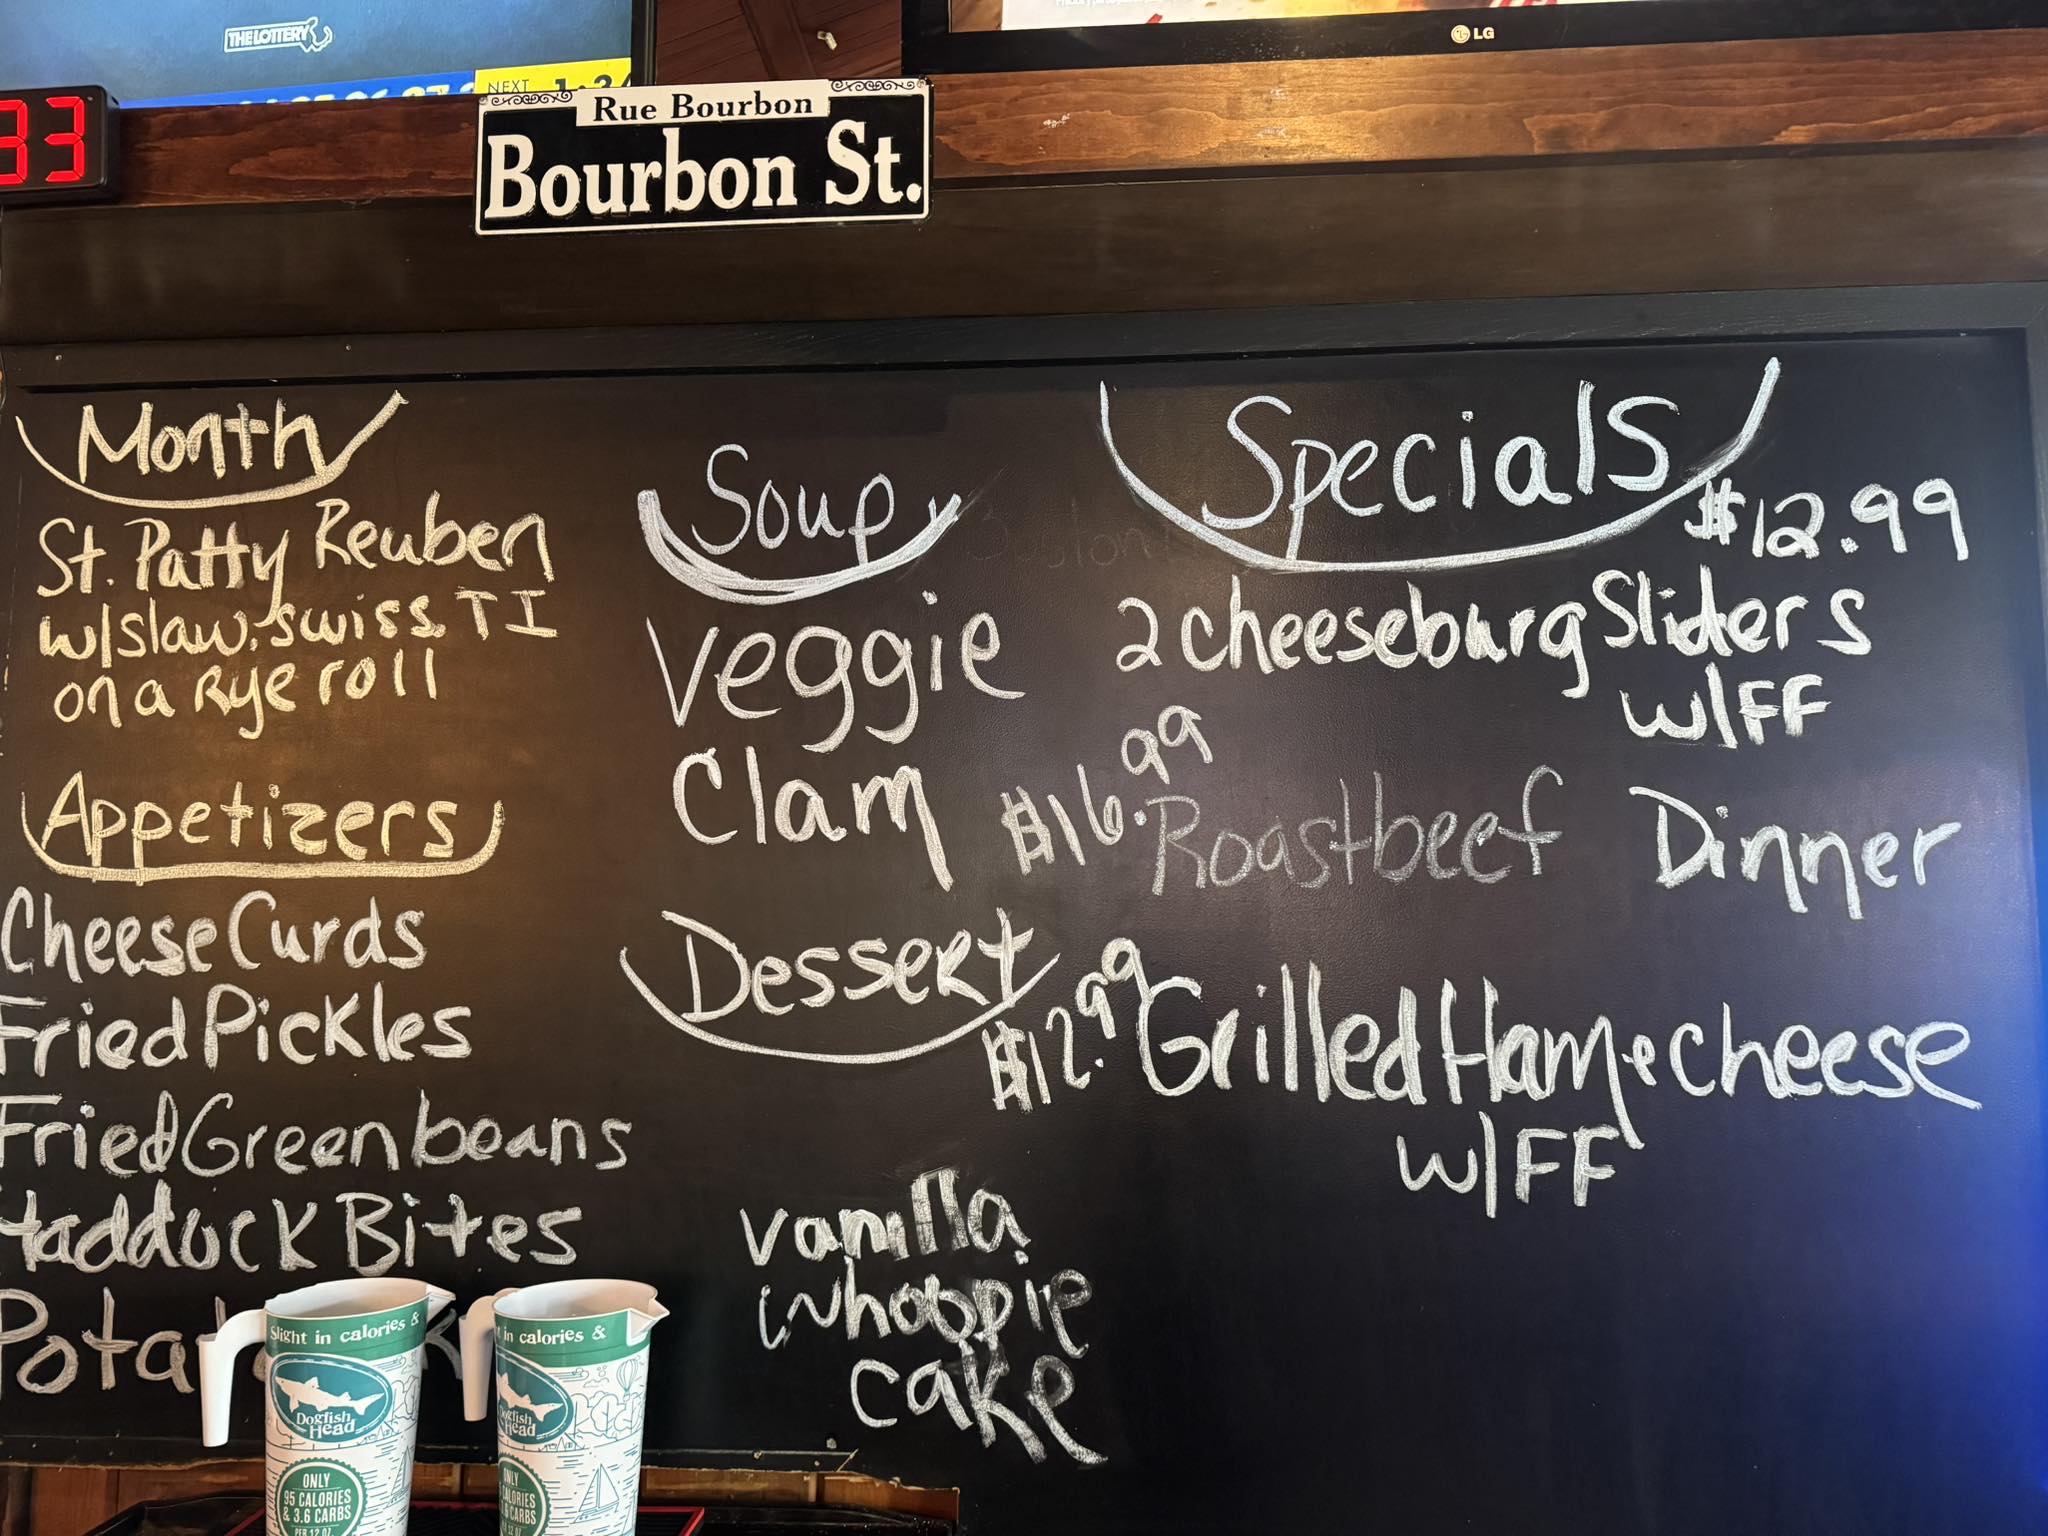 THE LOTTERY
NEXT
LG
33
Rue Bourbon
Bourbon St.
Month
St. Patty Reuben
w/slaw, swiss, TI
on a Rye roll
Appetizers
Cheese Curds
Fried Pickles
Fried Greenbeans
Haddock Bites
Soup
Veggie
Clam
Dessert
vanilla
whoopie
cake
Specials
$12.99
2 cheeseburg Sliders
w/FF
$16.99 Roastbeef Dinner
$12.99 Grilled Ham + cheese
w/FF
Slight in calories &
Dogfish
Head
ONLY
95 CALORIES
& 3.6 CARBS
PER 12 OZ
in calories &
Dogfish
Head
ONLY
CALORIES
CARBS